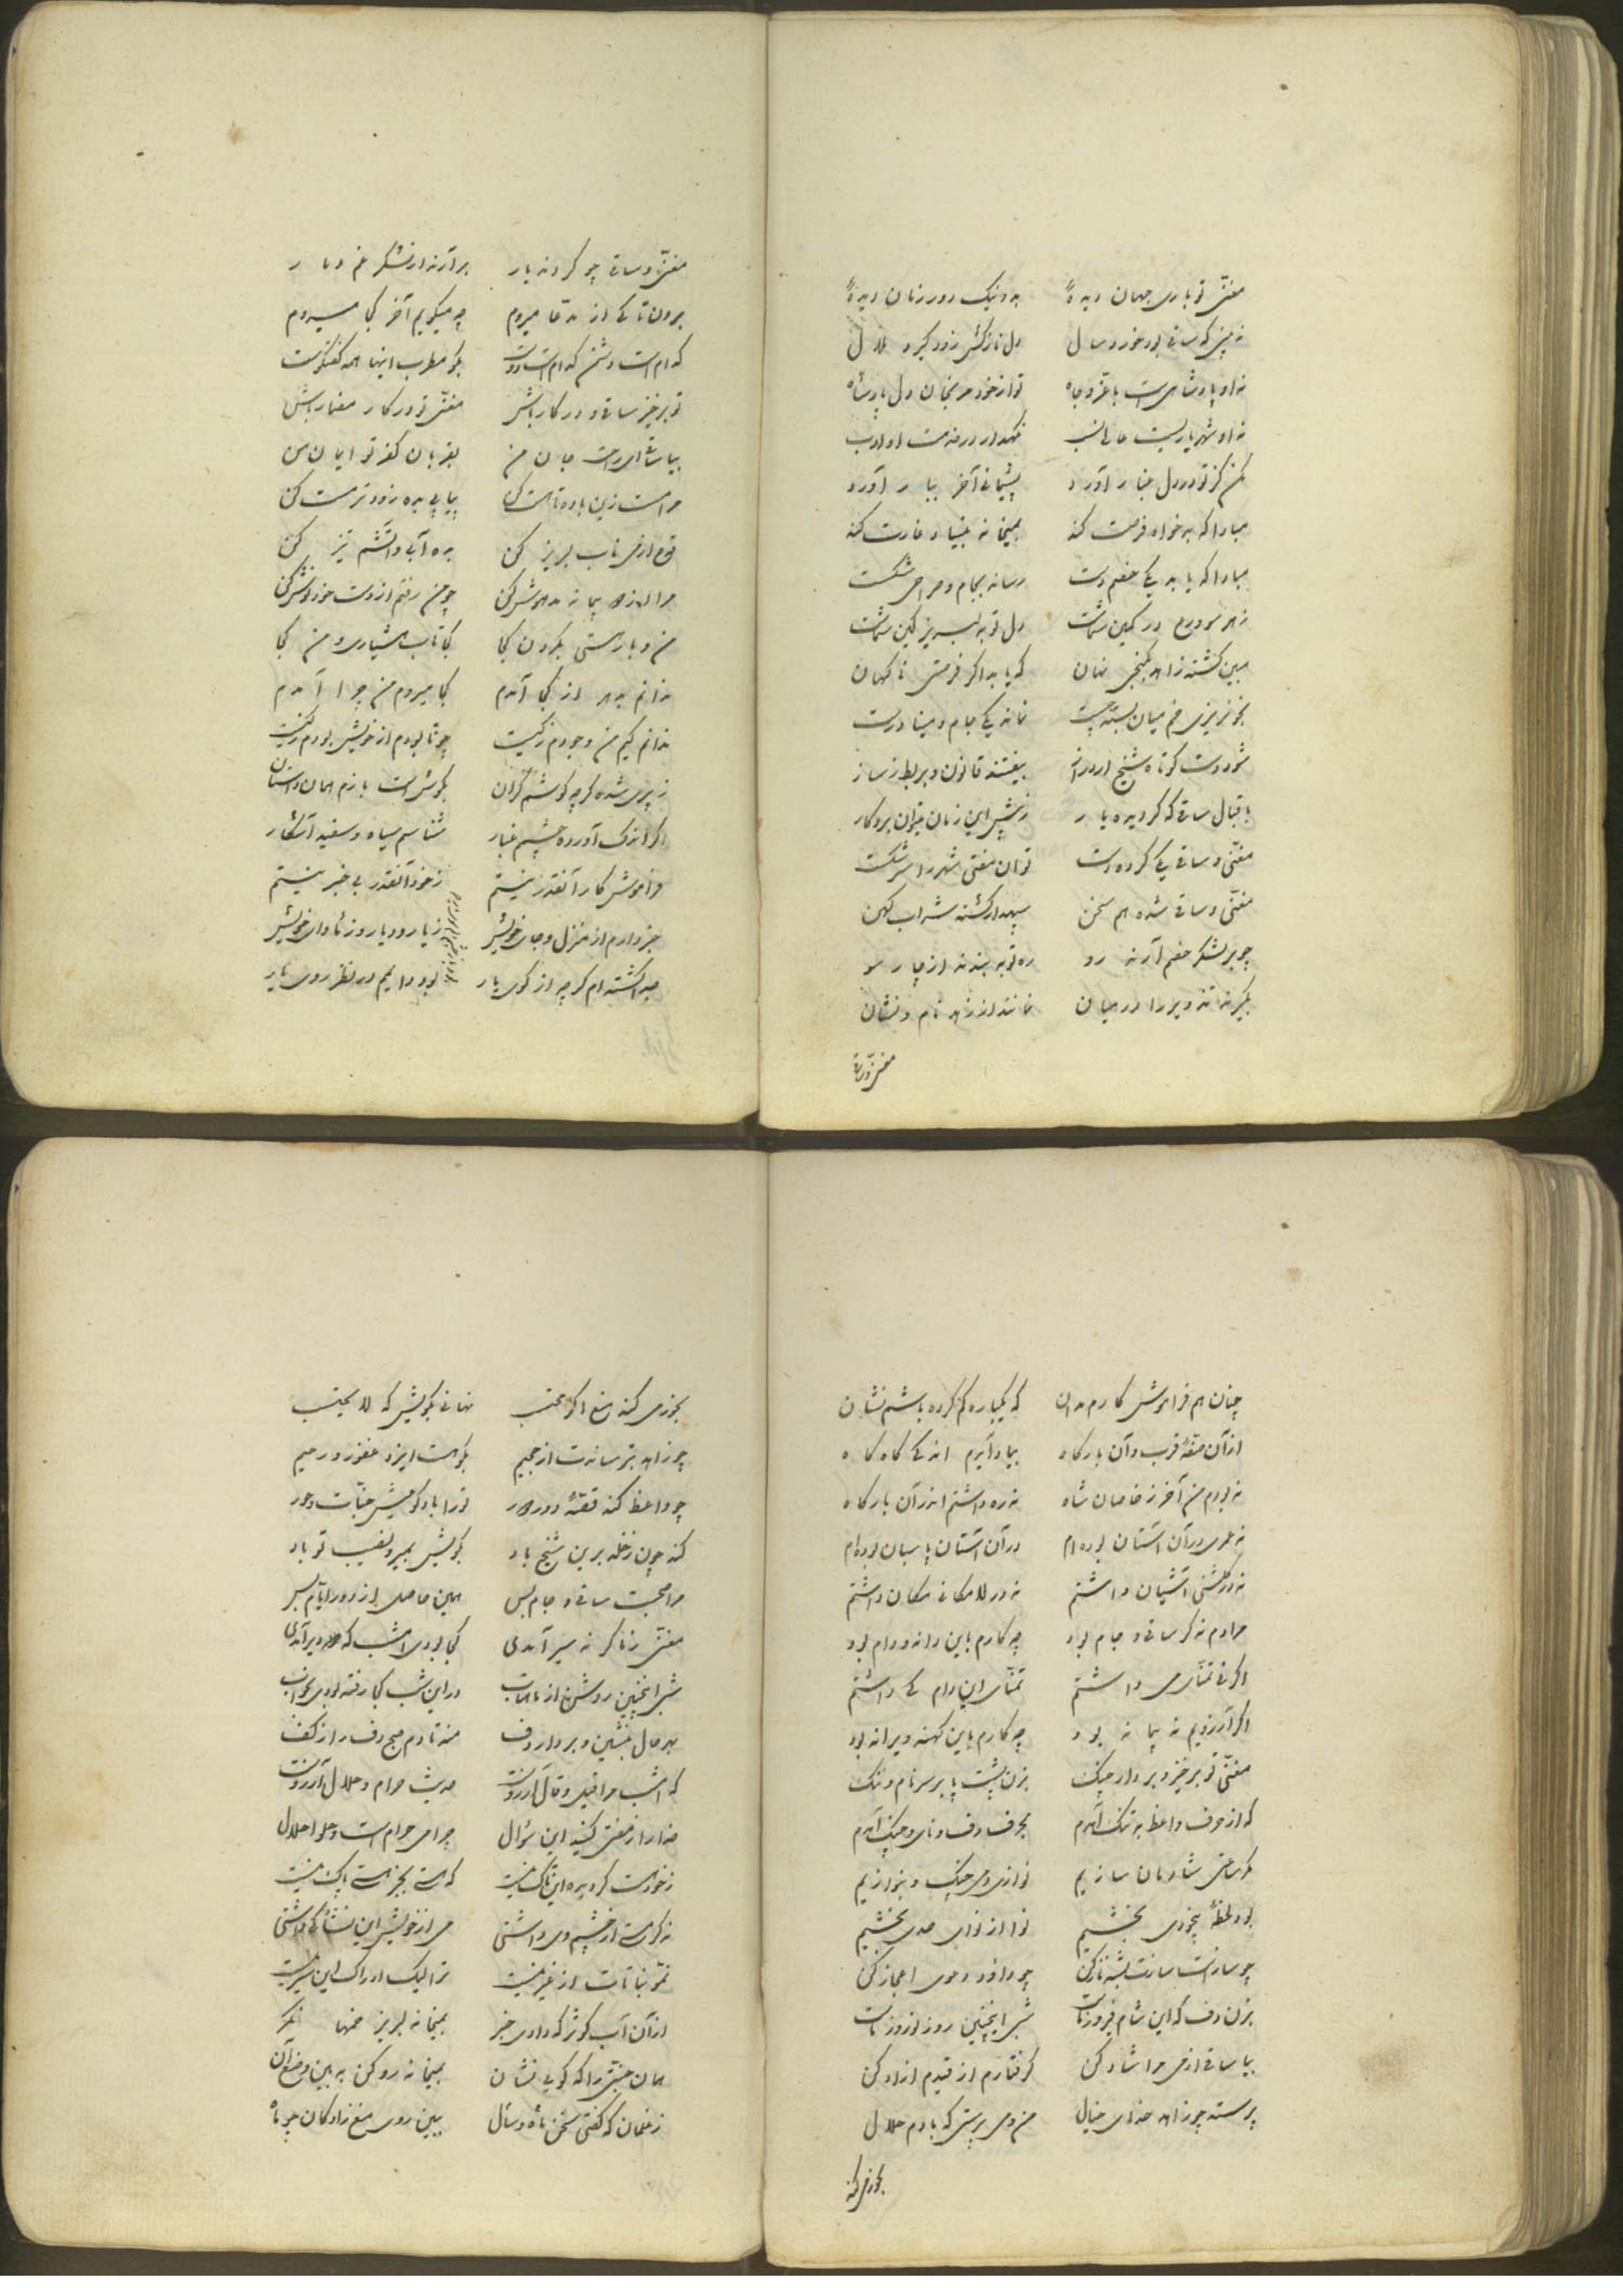 مغنّی تو باری جهان دیدهٔ بد و نیک دور زمان دیدهٔ
نه بینی که ساقی بود خورد سال دل نازکش زود گیرد ملال
نه او پادشاهی است با عزّ و جاه تو از خود مرنجان دل پادشاه
نه او شهریاریست عالی نسب نگهدار در خدمت او ادب
مکن کز تو در دل غبار آورد پشیمانی آخر ببار آورد
مبادا که بدخواه فرصت کند بمیخانه بنیاد غارت کند
مبادا که یابد یکی خصم دست رساند بجام و صراحی شکست
دل توبه لبریز کین شماست
ببین گشته زاهد بکنجی نهان که یابد اگر فرصتی ناگهان
بخونریزی خم میان بسته چست نماند یکی جام و مینا درست
شود دست کوتاه شیخ ار دراز بیفتند قانون و بربط ز ساز
باقبال ساقی که گردیده یار ز پیش این زمان میتوان برد کار
مغنّی و ساقی یکی کرده دست توان مفتی شهر را سر شکست
مغنّی و ساقی شده هم سخن سپهدار گشته شراب کهن
چو بر لشکر خصم آرند رو ره توبه بندند از چار سو
بگیرند تزویر را در میان نمانند از زهد نام و نشان
مغنّی و ساقی
مغنّی و ساقی چو گردند یار برآرند از لشکر غم دمار
برون تا کی از مدّعا میروم چه میگویم آخر کجا میروم
کدام است دشمن کدام است دوست بگو مطرب اینها همه گفتگوست
تو برخیز ساقی و در کار باش مغنّی تو در کار مضمار باش
بیا ساقی ای راحت جان من بقربان کفر تو ایمان من
مرا مست زین باده تا هست کن پیاپی بده زود تر مست کن
قدح از می ناب لبریز کن بده آبی و آتشم تیز کن
مرا از دو پیمانه مدهوش کن چو من رفتم از دست خود نوش کن
من و بار هستی بگردن کجا کجا تاب هشیاری و من کجا
ندانم بدهر از کجا آمدم کجا میروم من چرا آمدم
ندانم کیم من وجودم ز کیست چو نابودم از خویش بودم ز کیست
ز پیری شده گرچه گوشم گران بگوش است بازم همان داستان
اگر اندک آورده چشمم غبار شناسم سیاه و سفید آشکار
فراموش کار آنقدر نیستم ز خود آنقدر بی خبر نیستم
خبر دارم از منزل و جای خویش ز یار و دیار و ز ماوای خویش
جدا گشته ام گرچه از کوی یار بود دایمم در نظر روی یار
چنان هم فراموش کارم مدان که یکباره گم کرده باشم نشان
از آن صفّهٔ قرب و آن بارگاه بیاد آیرم اندکی گاه گاه
نه بودم من آخر ز خاصان شاه نه ره داشتم اندر آن بارگاه
نه عمری در آن آستان بوده ام در آن آستان پاسبان بوده ام
نه در گلشنی آشیان داشتم نه در لامکانی مکان داشتم
مرادم نه گر ساقی و جام بود چه کارم باین دانه و دام بود
اگر نی تمنّای می داشتم تمنّای این دام کی داشتم
اگر آرزویم نه پیمانه بود چه کارم باین کهنه ویرانه بود
مغنّی تو برخیز و بردار چنگ بزن پشت پا بر سر نام و ننگ
که از حرف واعظ به تنگ آمدم بحرف دف و نای و چنگ آمدم
نوازی دمی چنگ و بنوازیم
بود لحظهٔ بیخودی بخشیم نوا از نوای صدی بخشیم
چو سازاست سازت بشه ناز کن چو داود دعوی اعجاز کن
بزن دف که این شام فیروز ماست شبی اینچنین روز نوروز ماست
بیا ساقی از می مرا شاد کن گرفتارم از قیدم آزاد کن
پرستد چو زاهد خدای خیال من و می پرستی که بادم حلال
بخوری کند
بخوری کند منع اگر محتسب نهانی بگویش که لا یحتسب
چو زاهد بترساندت از جحیم بگو هست ایزد غفور و رحیم
چو واعظ کند قصّهٔ دور حور تو را باد گویش جنّات و حور
کند چون ز خلد برین شیخ یاد بگویش بمیر و نصیب تو باد
مرا صحبت ساقی و جام بس همین حاصل از دور ایّام بس
مغنّی ز ما گر نه سیر آمدی کجا بودی امشب که دیر آمدی
شبی اینچنین روشن از ماهتاب در این شب کجا رفته بودی بخواب
بهر حال بنشین و بردار دف منه تا دم صبح دف را ز کف
که امشب مرا قیل و قال آرزوست حدیث حرام و حلال آرزوست
خدا را ز مفتی کنید این سؤال چرا می حرام است و حلوا حلال
ز خود مست گردیده این تاک نیست که هست بجز هست پاک نیست
نه گر مستی از چشم وی داشتی می از خویش این نشأه کی داشتی
نموّ نباتات از غیر نیست ترا لیک ادراک این سیر نیست
از آن آب کوثر که دادی خبر بمیخانه لبریز خمها نگر
همان جنّتی را که گویی نشان بمیخانه رو کن به بین وضع آن
ز غلمان که گفتی سخن ماه و سال ببین روی مغ زادگان چو ماه